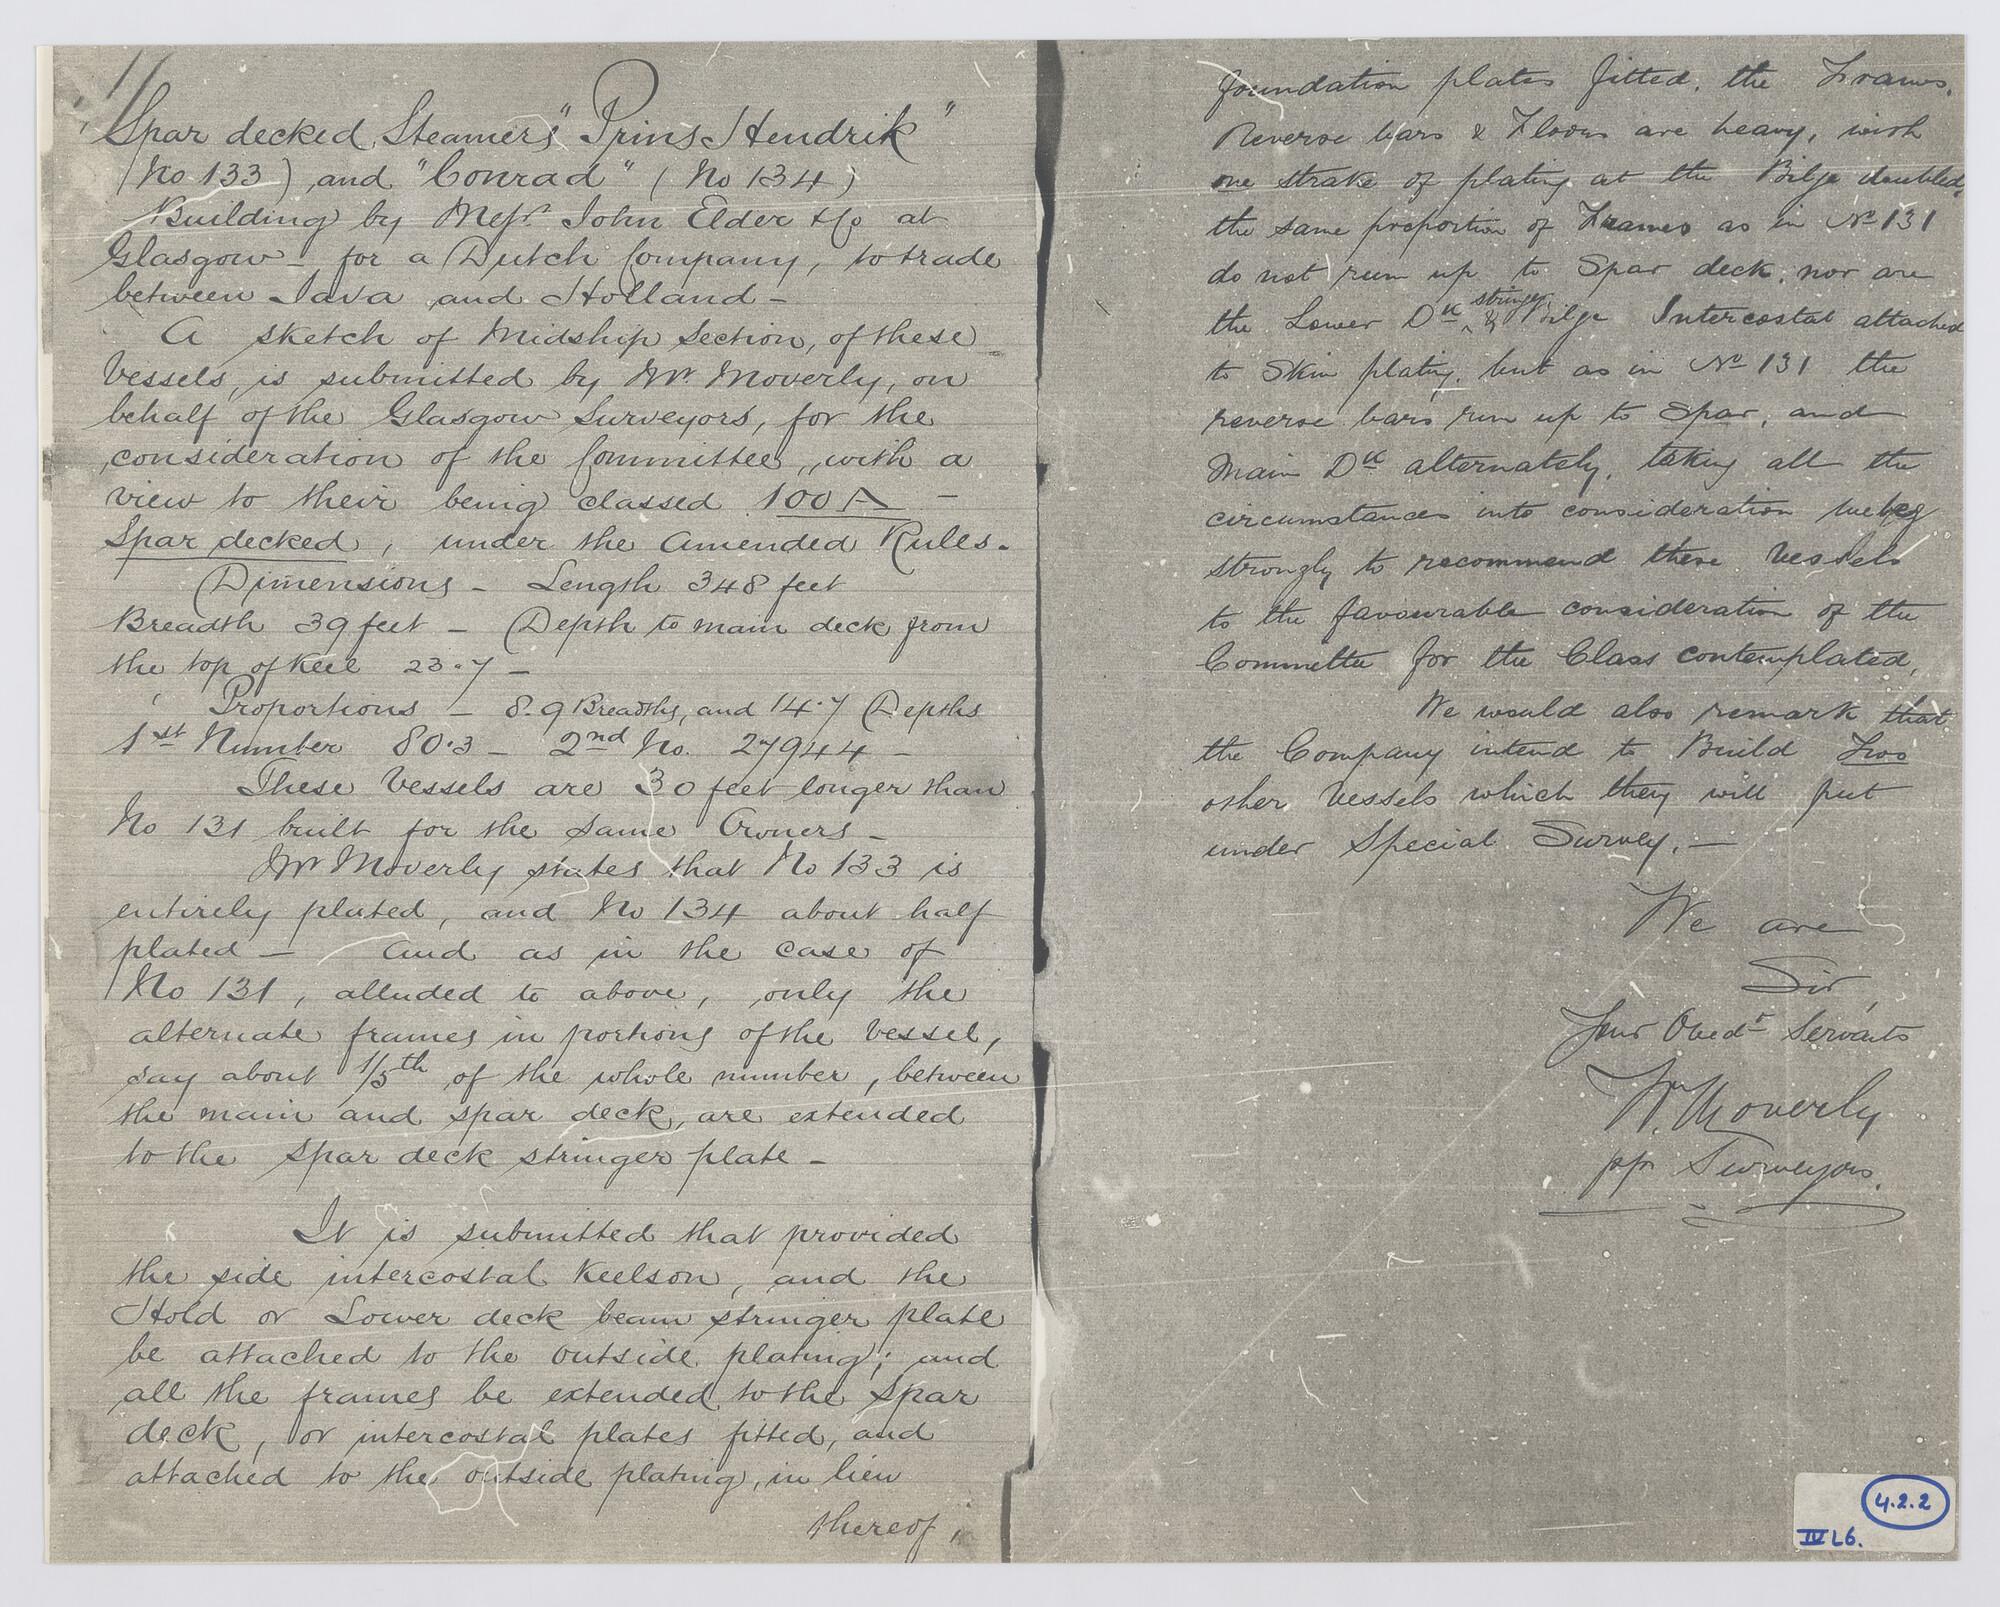 Spar decked Steamers "Prins Hendrik"
(No 133) and "Conrad" (No 134)
Building by Messrs John Elder & Co at
Glasgow – for a Dutch Company, to trade
between Java and Holland –
A sketch of Midship Section, of these
Vessels, is submitted by Mr. Moverly, on
behalf of the Glasgow Surveyors, for the
consideration of the Committee, with a
view to their being classed 100 A –
Spar decked, under the Amended Rules.
Dimensions – Length 348 feet
Breadth 39 feet – Depth to main deck from
the top of Keel 23.7 –
Proportions – 8.9 Breadths, and 14.7 Depths
1st Number 80.3 – 2nd No. 27944 –
These Vessels are 30 feet longer than
No 131 built for the same Owners –
Mr Moverly states that No 133 is
entirely plated, and No 134 about half
plated – and as in the case of
No 131, alluded to above, only the
alternate frames in portions of the Vessel,
say about 1/5th of the whole number, between
the main and spar deck, are extended
to the spar deck stringer plate –
It is submitted that provided
the side intercostal Keelson, and the
Hold or Lower deck beam stringer plate
be attached to the outside plating; and
all the frames be extended to the Spar
deck, or intercostal plates fitted, and
attached to the outside plating, in lieu
thereof,
foundation plates fitted, the Frames,
Reverse bars & Floors are heavy, with
one strake of plating at the Bilge doubled,
the same proportion of Frames as in No 131
do not run up to Spar deck, nor are
the Lower Dk stringer & Bilge Intercostal attached
to Skin plating, but as in No 131 the
reverse bars run up to Spar, and
Main Dk alternately, taking all the
circumstances into consideration we beg
strongly to recommend these Vessels
to the favourable consideration of the
Committee for the Class contemplated,
We would also remark that
the Company intend to Build two
other Vessels which they will put
under Special Survey. –
We are
Sir,
Your Obedt Servants
Wm Moverly
pp Surveyors.
4.2.2
IV L6.